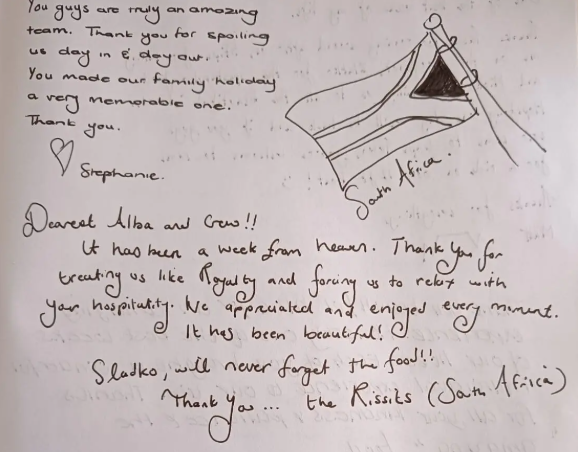 You guys are truly an amazing
team. Thank you for spoiling
us day in & day out.
You made our family holiday
a very memorable one.
Thank you.
Stephanie.
South Africa.
Dearest Alba and Crew!!
It has been a week from heaven. Thank you for
treating us like Royalty and forcing us to relax with
your hospitality. We appreciated and enjoyed every moment.
It has been beautiful!
Sladko, will never forget the food!!
Thank you... the Rissits (South Africa)